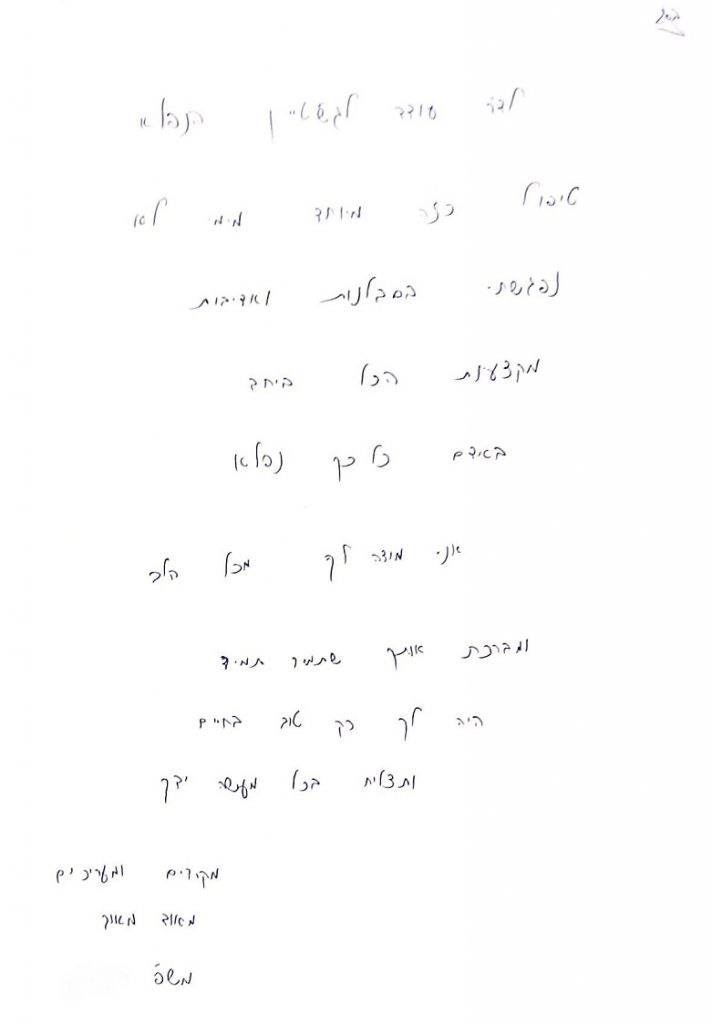 בס"ד
לדר סודר לגשטיין הנפלא
טיפול כזה מיוחד מימי לא
נפגשתי בסבלנות ואדיבות
מקצענות הכל ביחב
באידם כל כך נפלא
אני מודה לך מכל הלב
ומברכת אותך שתמיר תמיד
היה לך רק טוב בחיים
ותצליח בכל מעשה ידך
מקירים ומעריכים
מאוד מאוד
משפ'